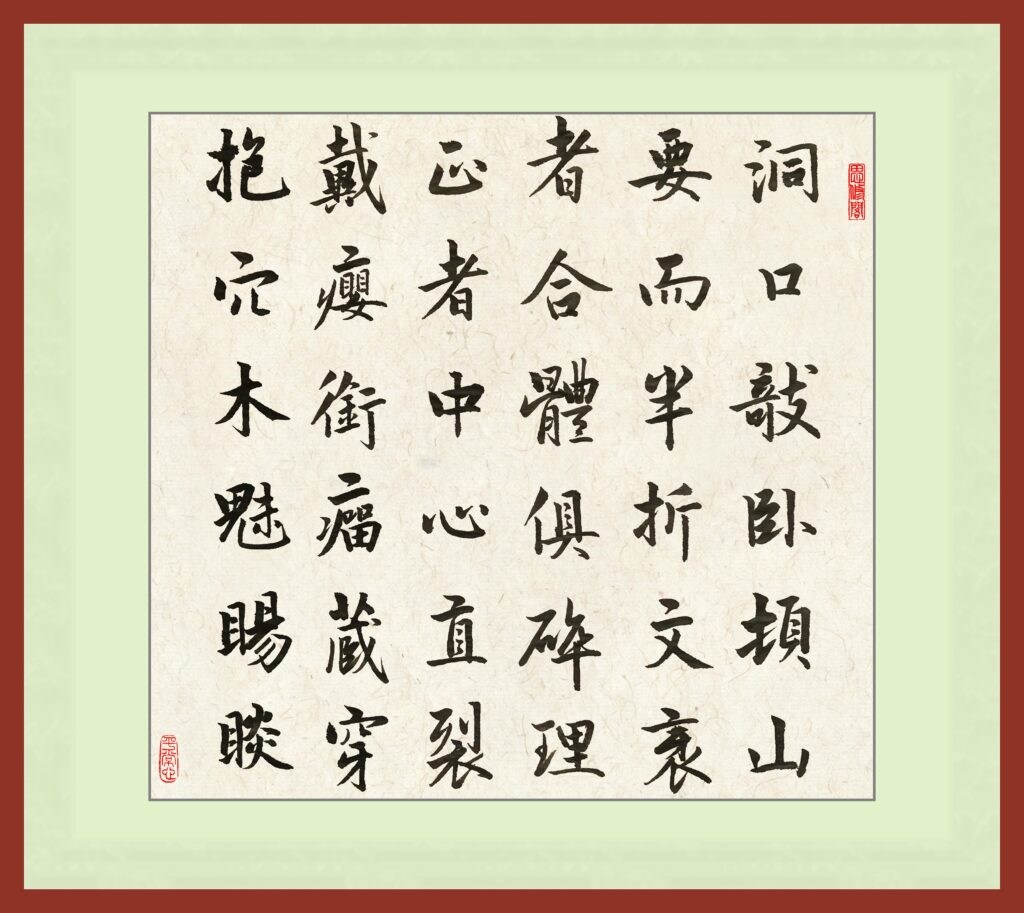 洞口敧卧頓山
要而半折文衺
者合體俱碎理
正者中心直裂
戴癭銜瘤藏穿
抱穴木魅睗睒
平常心